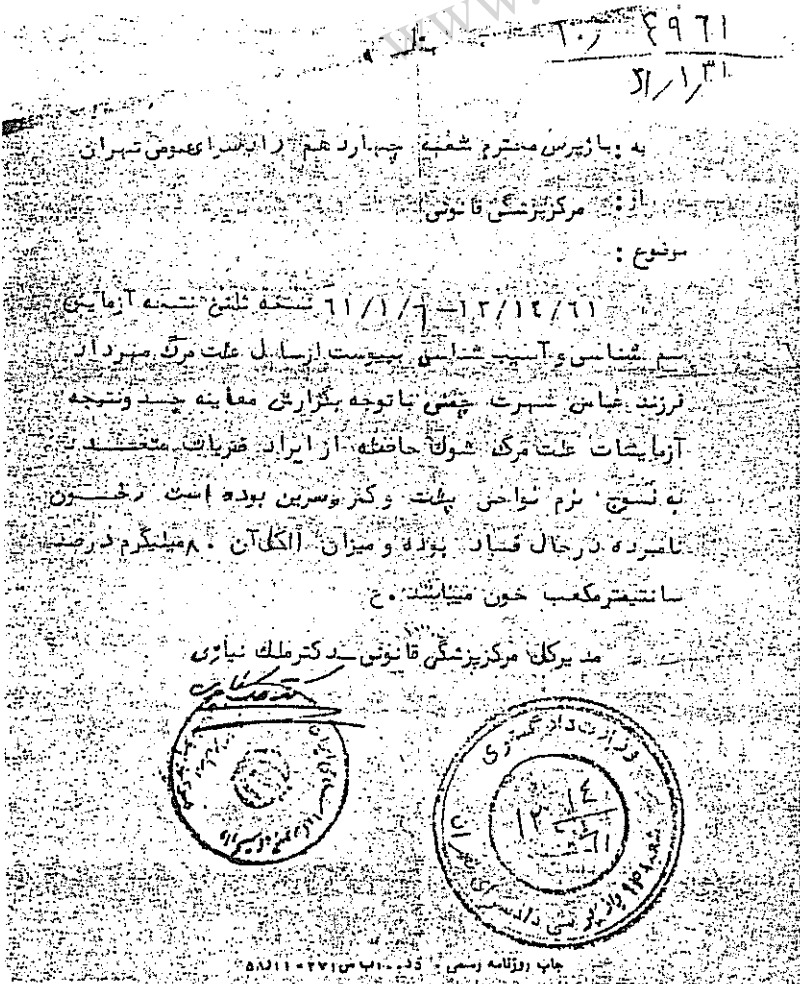 www.
۶۰/ ٤٩٦١
۳۱/۱/
به : بازپرس محترم شعبه چهاردهم دادسرای عمومی تهران
از : مرکز پزشکی قانونی
موضوع :
۶۱/۱٤/۱۲ — ۶۱/۱/ نتیجه آزمایش
سم شناسی و آسیب شناسی بپیوست ارسال علت مرگ مهرداد
فرزند عباس شهرت با توجه بگزارش معاینه جسد ونتیجه
آزمایشات علت مرگ شوک حاصله از ایراد ضربات متعدد
به نسوج نرم نواحی پشت و کمر وسرین بوده است درخون
نامبرده درحال فساد بوده و میزان الکل آن ۸۰ میلیگرم درصد
سانتیمترمکعب خون میباشد . ح
مدیرکل مرکزپزشکی قانونی — دکترملک نیازی
وزارت دادگستری
شعبه ۱٤ بازپرسی دادسرای تهران
۱٤
۱۲
۶۱
چاپ روزنامه رسمی